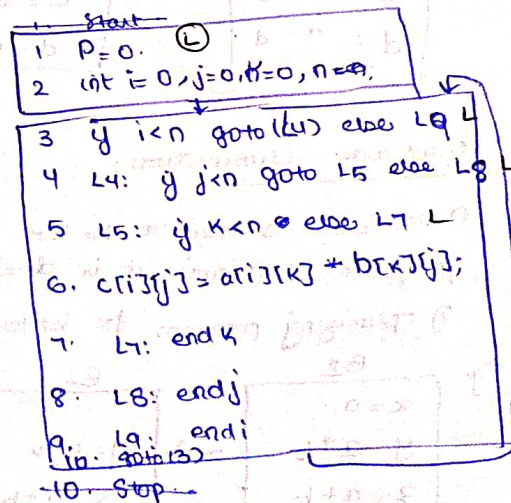 Start
1 P=0. L
2 int i=0, j=0, K=0, n=
3 if i<n goto (L4) else L9 L
4 L4: if j<n goto L5 else L8 L
5 L5: if K<n else L7 L
6. c[i][j] = a[i][K] * b[K][j];
7. L7: end K
8. L8: end j
9. L9: end i
10. goto (3)
10. Stop